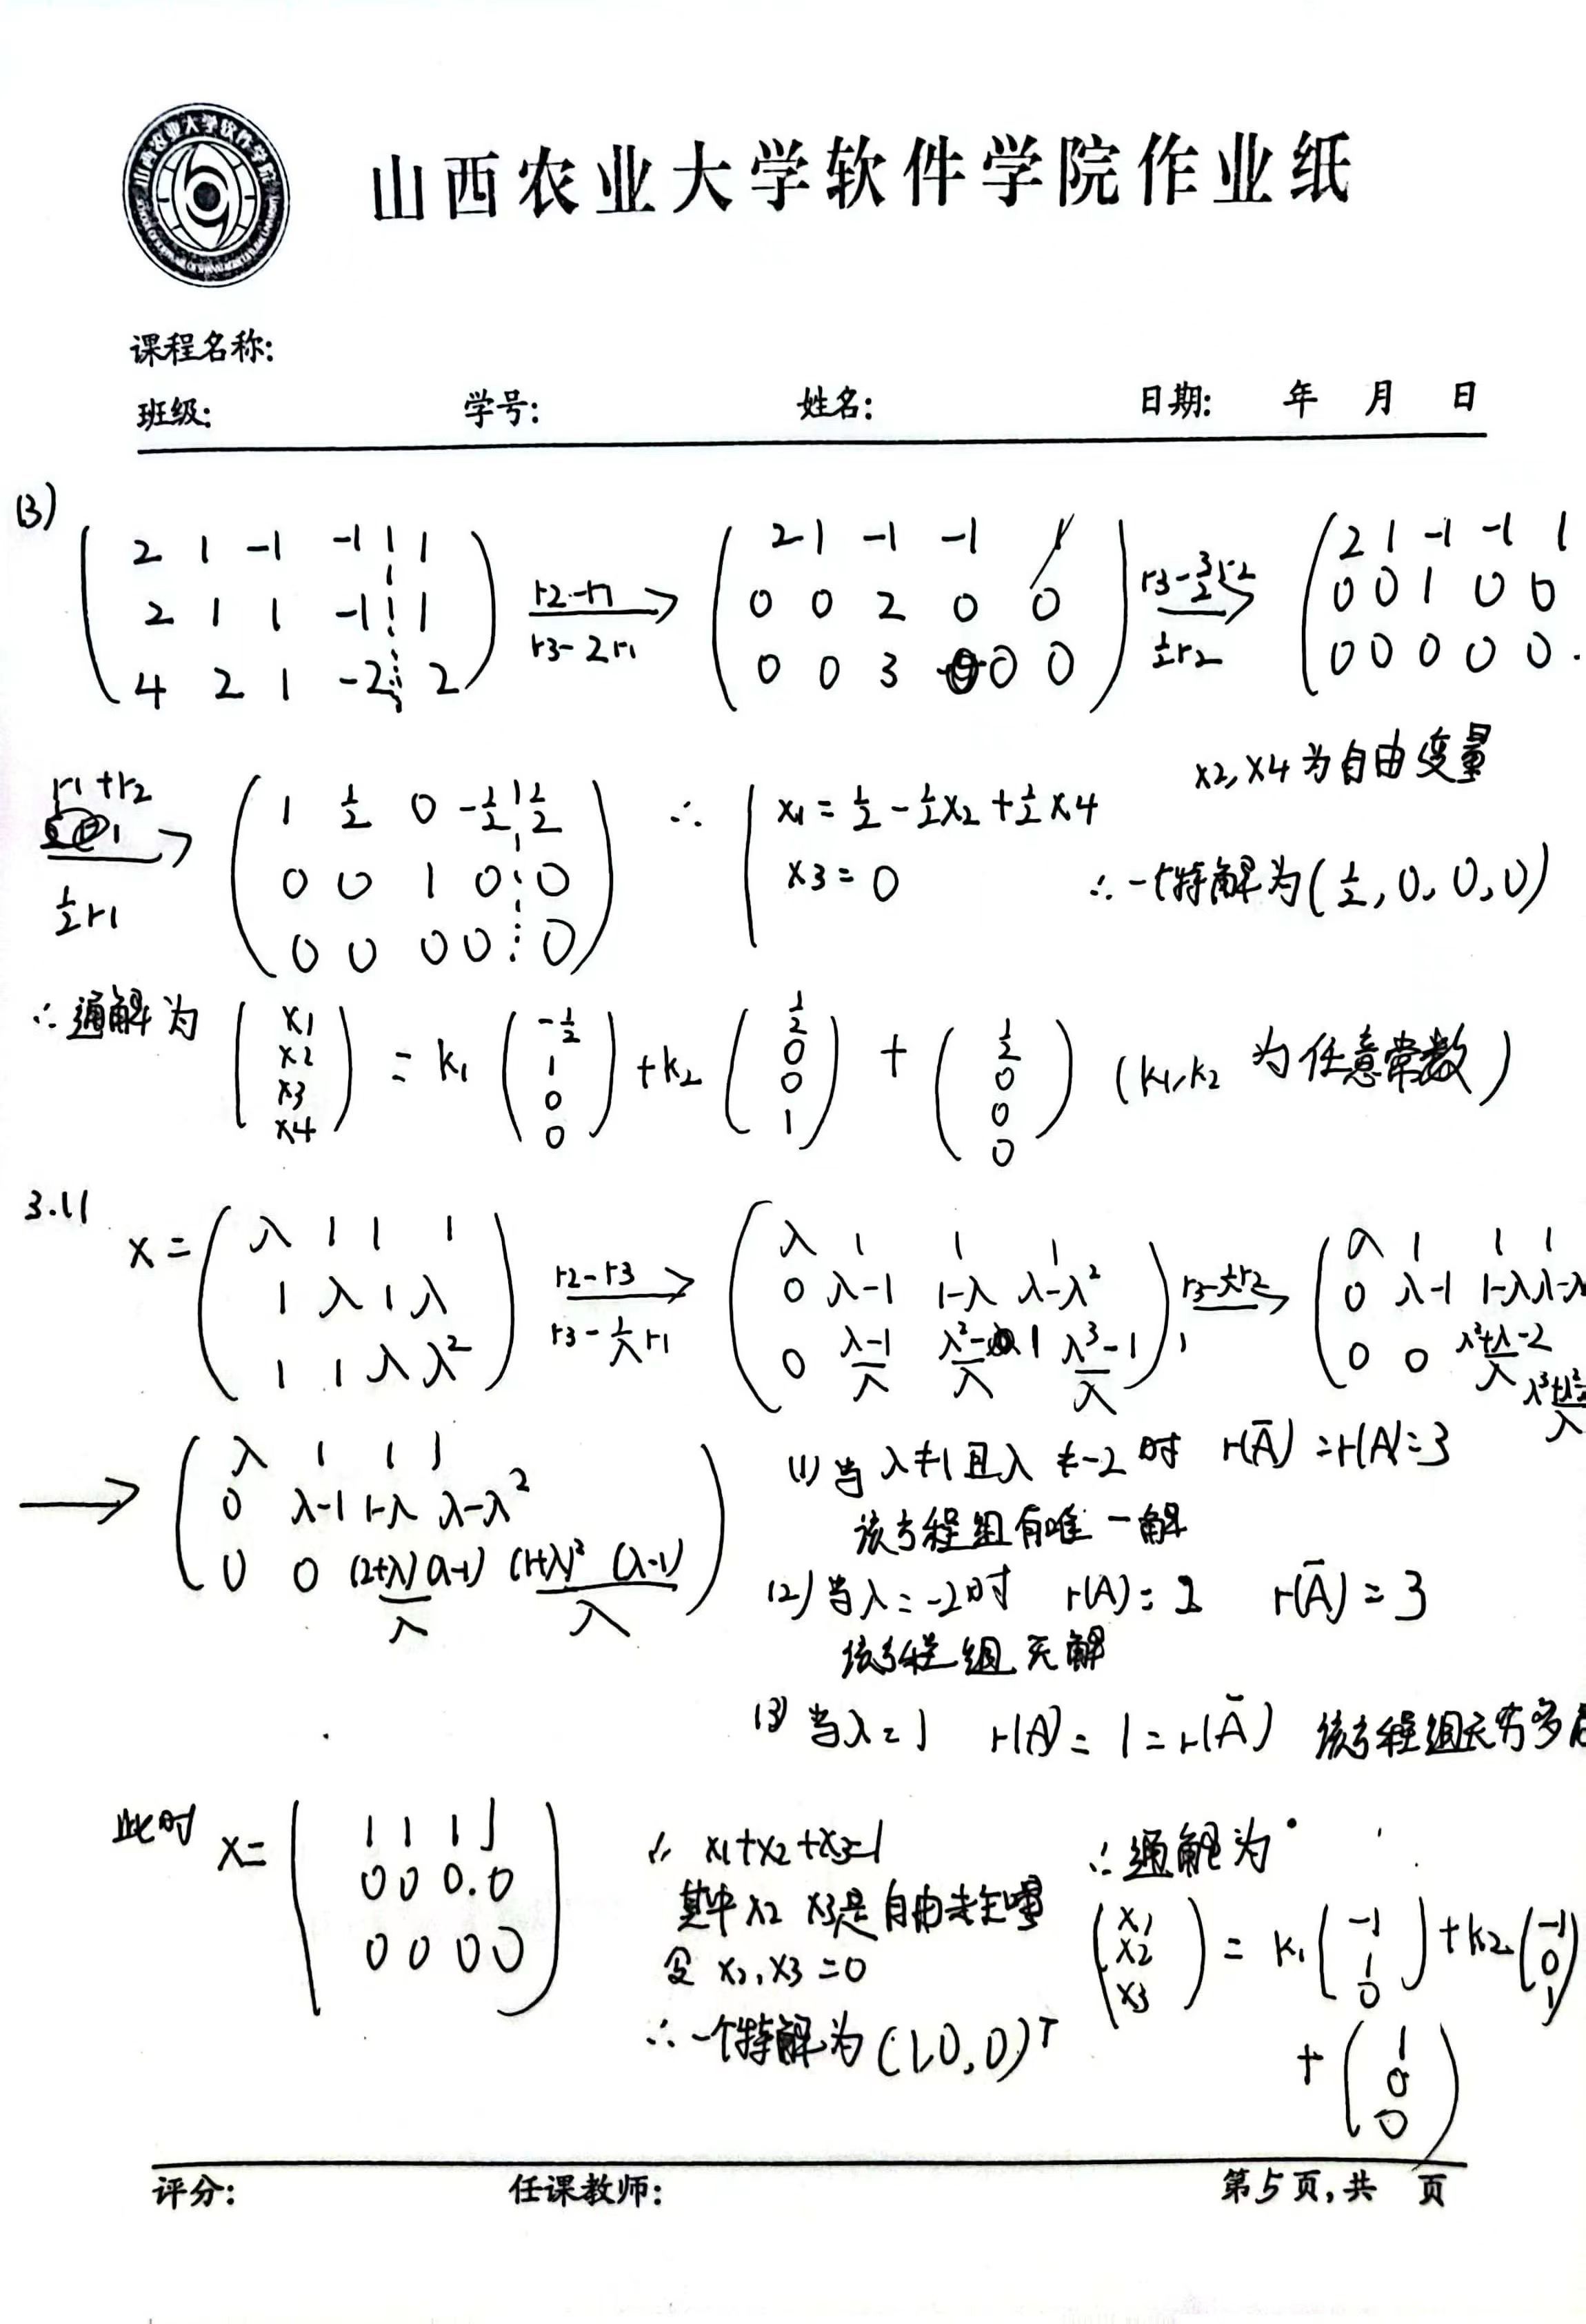 山西农业大学软件学院作业纸
课程名称:
班级: 学号: 姓名: 日期: 年 月 日
(3)
2 1 -1 -1 1
2 1 1 -1 1
4 2 1 -2 2
r2-r1
r3-2r1
2 1 -1 -1 1
0 0 2 0 0
0 0 3 0 0
r3-3/2r2
1/2r2
2 1 -1 -1 1
0 0 1 0 0
0 0 0 0 0
r1+r2
1/2r1
1 1/2 0 -1/2 1/2
0 0 1 0 0
0 0 0 0 0
∴ x1=1/2-1/2x2+1/2x4
x3=0
x2,x4为自由变量
∴一个特解为(1/2,0,0,0)
∴通解为 (x1 x2 x3 x4) = k1 (-1/2 1 0 0) +k2 (1/2 0 0 1) + (1/2 0 0 0) (k1,k2 为任意常数)
3.11
x=
λ 1 1 1
1 λ 1 λ
1 1 λ λ²
r2-r3
r3-1/λr1
λ 1 1 1
0 λ-1 1-λ λ-λ²
0 (λ-1)/λ (λ²-1)/λ (λ³-1)/λ
r3-1/λr2
λ 1 1 1
0 λ-1 1-λ
0 0 (λ²+λ-2)/λ
λ 1 1 1
0 λ-1 1-λ λ-λ²
0 0 (2+λ)(λ-1)/λ (1+λ)²(λ-1)/λ
(1)当λ≠1且λ≠-2时 r(Ā)=r(A)=3
该方程组有唯一解
(2)当λ=-2时 r(A)=2 r(Ā)=3
该方程组无解
(3)当λ=1 r(A)=1=r(Ā) 该方程组无穷多
此时 x=
1 1 1 1
0 0 0 0
0 0 0 0
∴ x1+x2+x3=1
其中x2 x3是自由未知量
令 x2,x3=0
∴一个特解为(1,0,0)ᵀ
∴通解为
(x1 x2 x3) = k1 (-1 1 0) +k2 (-1 0 1)
+ (1 0 0)
评分: 任课教师: 第5页,共 页